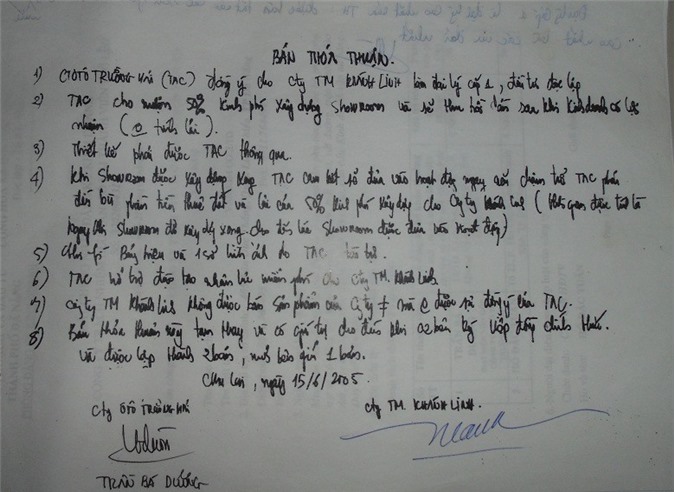 BẢN THỎA THUẬN.
1) CTOTO TRƯỜNG HẢI (TAC) đồng ý cho Cty TM KHÁNH LINH làm đại lý cấp 1, đầu tư độc lập
2) TAC cho mượn 50% kinh phí xây dựng Showroom và sẽ thu hồi dần sau khi kinh doanh có lợi
nhuận ( tính lãi ).
3) Thiết kế phải được TAC thông qua.
4) Khi Showroom được xây dựng xong TAC cam kết sẽ đưa vào hoạt động ngay nếu chậm trễ TAC phải
đền bù phần tiền thuê đất và lãi của 50% kinh phí xây dựng cho Công ty Khánh Linh ( thời gian được tính từ
ngay khi Showroom đã xây dựng xong cho đến lúc Showroom được đưa vào hoạt động)
5) Chi phí Bảng hiệu và 1 số hình ảnh do TAC tài trợ.
6) TAC hỗ trợ đào tạo nhân lực miễn phí cho Cty TM. Khánh Linh.
7) Công ty TM Khánh Linh không được bán sản phẩm của Cty ≠ mà được sự đồng ý của TAC.
8) Bản thỏa thuận này tạm thay và có giá trị cho đến khi 02 bên ký hợp đồng chính thức.
và được lập thành 2 bản, mỗi bên giữ 1 bản.
Chu Lai, ngày 15/6/2005.
Cty OTO TRƯỜNG HẢI
Cty TM. KHÁNH LINH.
TRẦN BÁ DƯƠNG